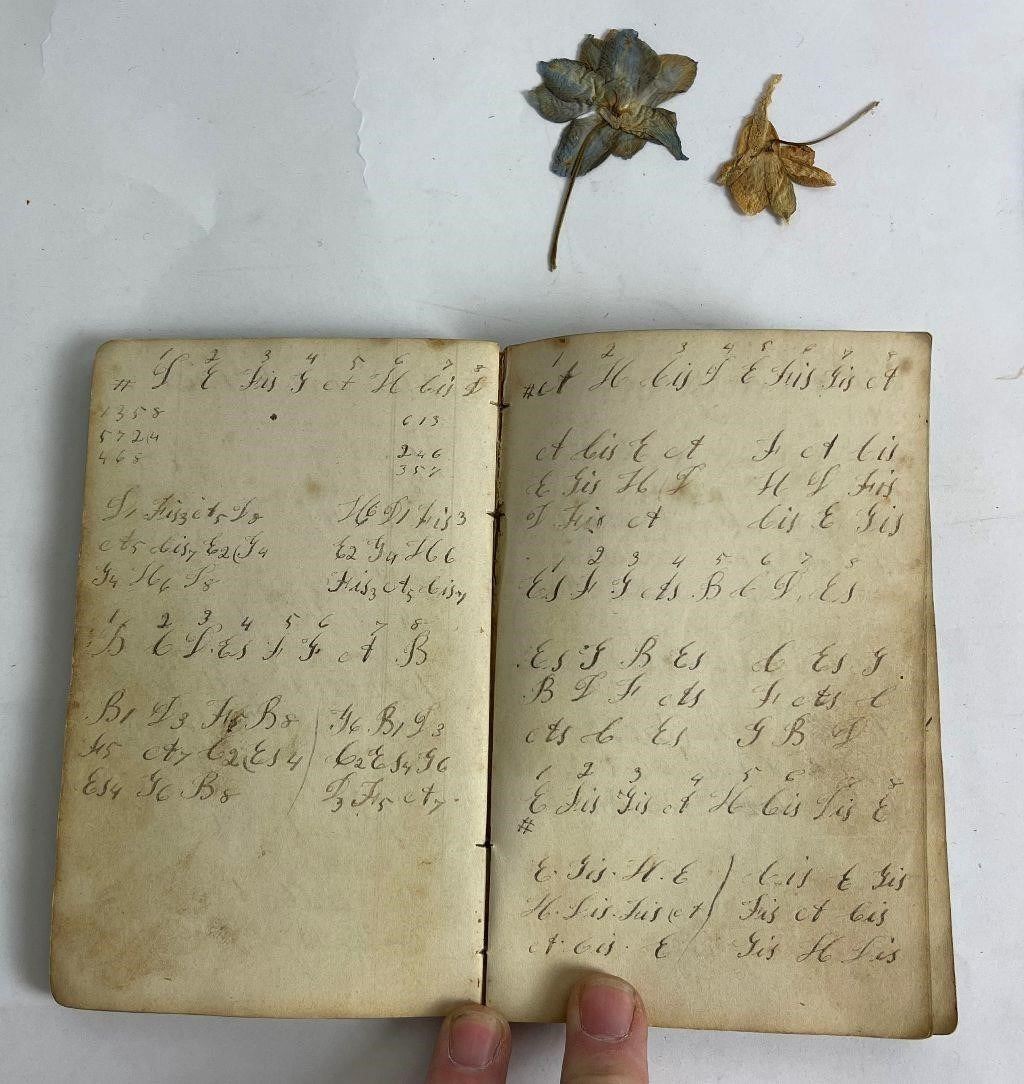 1 2 3 4 5 6 7 8
# D E Fis G A H Cis D
1358 613
5724 246
468 357
D1 Fis3 A5 D8 H6 D1 Fis3
A5 Cis7 E2(G4 E2 G4 H6
G4 H6 D8 Fis3 A5 Cis7
1 2 3 4 5 6 7 8
B C D Es F G A B
B1 D3 F5 B8 ) G6 B1 D3
F5 A7 C2(Es4 C2 Es4 G6
Es4 G6 B8 D3 F5 A7
1 2 3 4 5 6 7 8
#A H Cis D E Fis Gis A
A Cis E A F A Cis
E Gis H D H D Fis
D Fis A Cis E Gis
1 2 3 4 5 6 7 8
Es F G As B C D Es
Es G B Es C Es G
B D F As F As C
As C Es G B D
1 2 3 4 5 6 7 8
E Fis Gis A H Cis Dis E
#
E. Gis. H. E ) Cis E Gis
H. Dis. Fis (A) Fis A Cis
A. Cis. E Gis H Dis